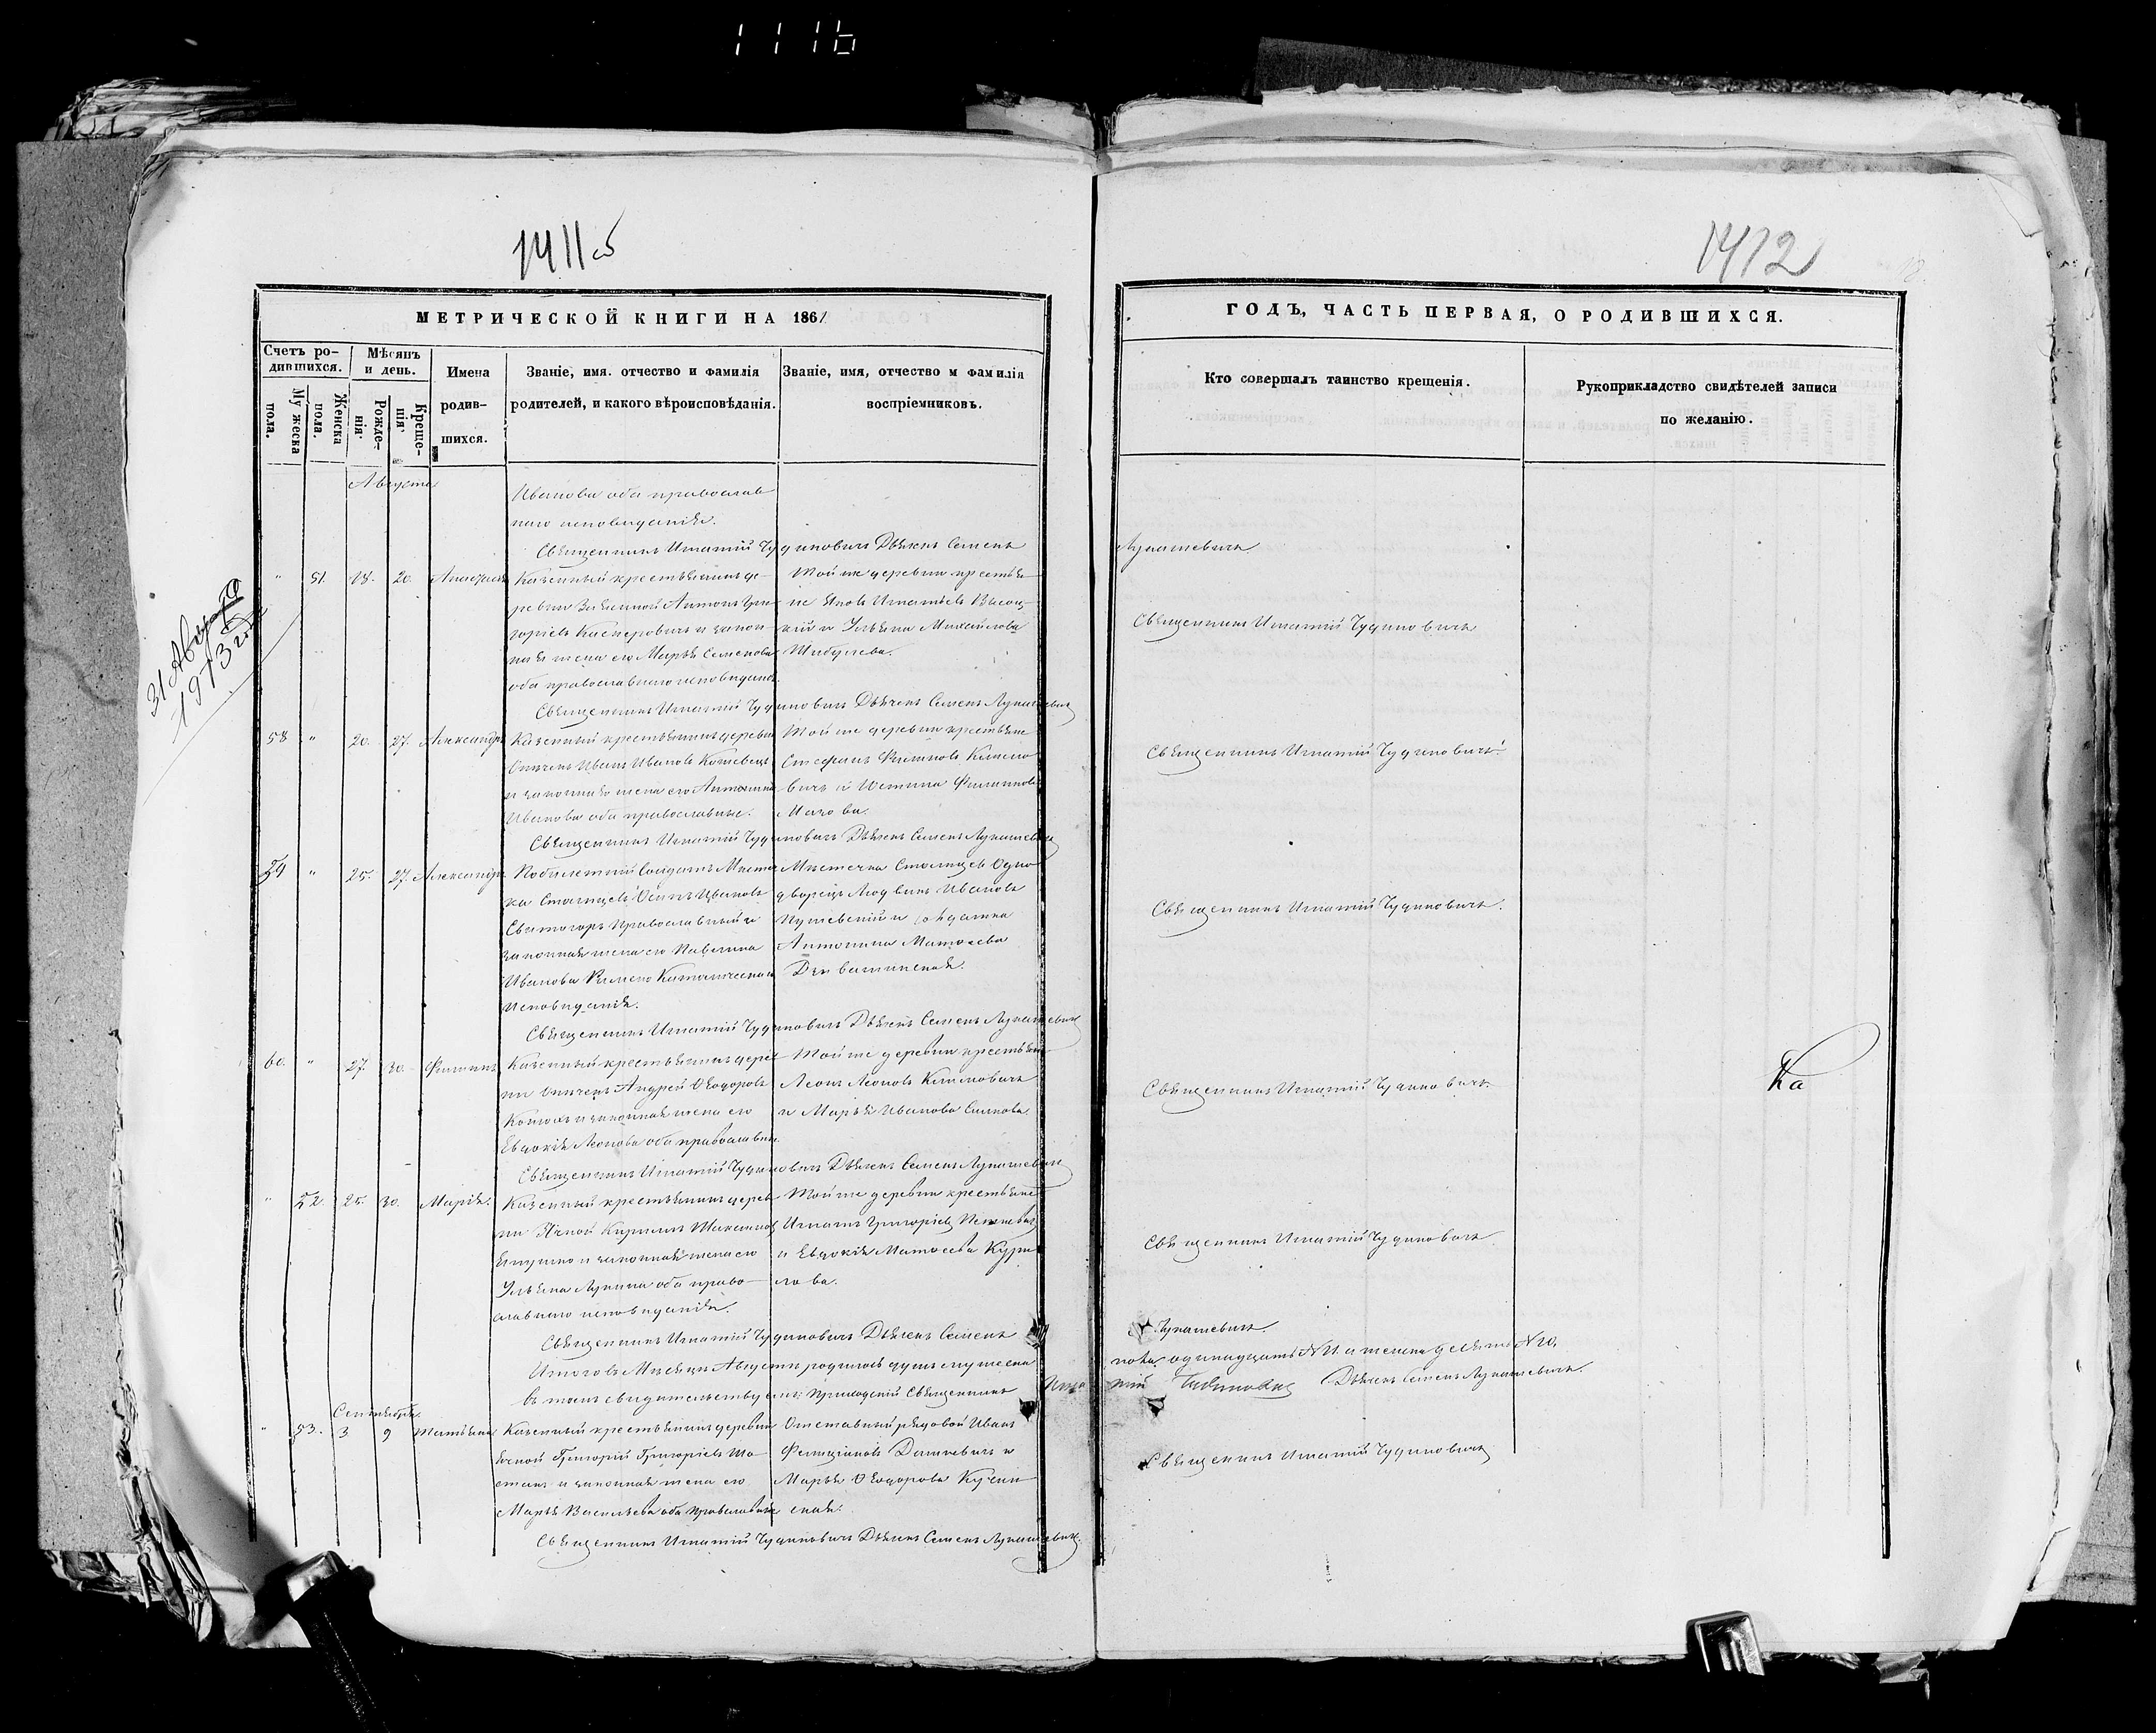 1116
1411об
1412
МЕТРИЧЕСКОЙ КНИГИ НА 1861
ГОДЪ, ЧАСТЬ ПЕРВАЯ, О РОДИВШИХСЯ.
Счетъ родившихся.
Мужеска пола.
Женска пола.
Мѣсяцъ и день.
Рожденія
Крещенія
Имена родившихся.
Званіе, имя. отчество и фамилія
родителей, и какого вѣроисповѣданія.
Званіе, имя, отчество и фамилія
воспріемниковъ.
Кто совершалъ таинство крещенія.
Рукоприкладство свидѣтелей записи
по желанію.
Августа
Иванова оба православ
наго исповиданія.
Священникъ Игнатій Чудиновичъ Дьячекъ Семенъ
Лукашевичъ
31 Августа
1913 года
" 51. 18. 20. Анастасія
Казенный крестьянинъ де-
ревни Антонъ Гри-
горіевъ Касперовичъ и закон-
ная жена его Марья Семенова
оба православнаго исповиданія
Той же деревни крестья-
не Яковъ Игнатьевъ Высоц-
кій и Ульяна Михайлова
Шибулева.
Священникъ Игнатій Чудиновичъ
Священникъ Игнатій Чудиновичъ Дьячекъ Семенъ Лукашевичъ
58 " 20. 27. Александръ
Казенный крестьянинъ деревни
Опичекъ Иванъ Ивановъ
и законная жена его Антонина
Иванова оба православные.
Той же деревни крестьяне
Стефанъ Филиповъ Климо
вичъ и Юстина Филиппова
Священникъ Игнатій Чудиновичъ
Священникъ Игнатій Чудиновичъ Дьячекъ Семенъ Лукашевичъ
59 " 25. 27. Александръ
Побилетній Солдатъ Мѣстеч
ка Столпцевъ Осипъ Ивановъ
Святогоръ Православный и
законная жена его Павелина
Иванова Римско Католическаго
Исповиданія.
Мѣстечка Столпцевъ Одно
дворецъ Людвикъ Ивановъ
и солдатка
Антонина Матоеева
Священникъ Игнатій Чудиновичъ.
Священникъ Игнатій Чудиновичъ Дьячекъ Семенъ Лукашевичъ
60. " 27. 30. Филипъ
Казенный крестьянинъ дерев
ни Опичекъ Андрей Ѳеодоровъ
Конюхъ и законная жена его
Евдокія Леонова оба православн.
Той же деревни крестьяне
Леонъ Леоновъ Климовичъ
и Марья Иванова
Священникъ Игнатій Чудиновичъ.
Ка
Священникъ Игнатій Чудиновичъ Дьячекъ Семенъ Лукашевичъ
" 52. 25. 30. Марія.
Казенный крестьянинъ дерев
ни Ячной Кирилъ Максимов
и законная жена его
Ульяна Лукина оба право-
славнаго исповиданія.
Той же деревни крестьяне
Игнатъ Григоріевъ
и Евдокія Матоеева Кури
лова.
Священникъ Игнатій Чудиновичъ
Священникъ Игнатій Чудиновичъ Дьячекъ Семенъ
Лукашевичъ.
Итого въ Мѣсяцѣ Августѣ родилось душъ мужеска
пола одинадцать №11 и женска десять №10.
въ томъ свидительствуемъ: Приходскій Священникъ Игнатій Чудиновичъ Дьячекъ Семенъ Лукашевичъ.
Сентября.
" 53. 3 9 Татьяна
Казенный крестьянинъ деревни
Ячной Григорій Григоріевъ Ша-
стакъ и законная жена его
Марья Васильева оба Православные
Отставный рядовой Иванъ
Фелиціановъ Дашкевичъ и
Марья Ѳеодорова Кучин
ская.
Священникъ Игнатій Чудиновичъ
Священникъ Игнатій Чудиновичъ Дьячекъ Семенъ Лукашевичъ.